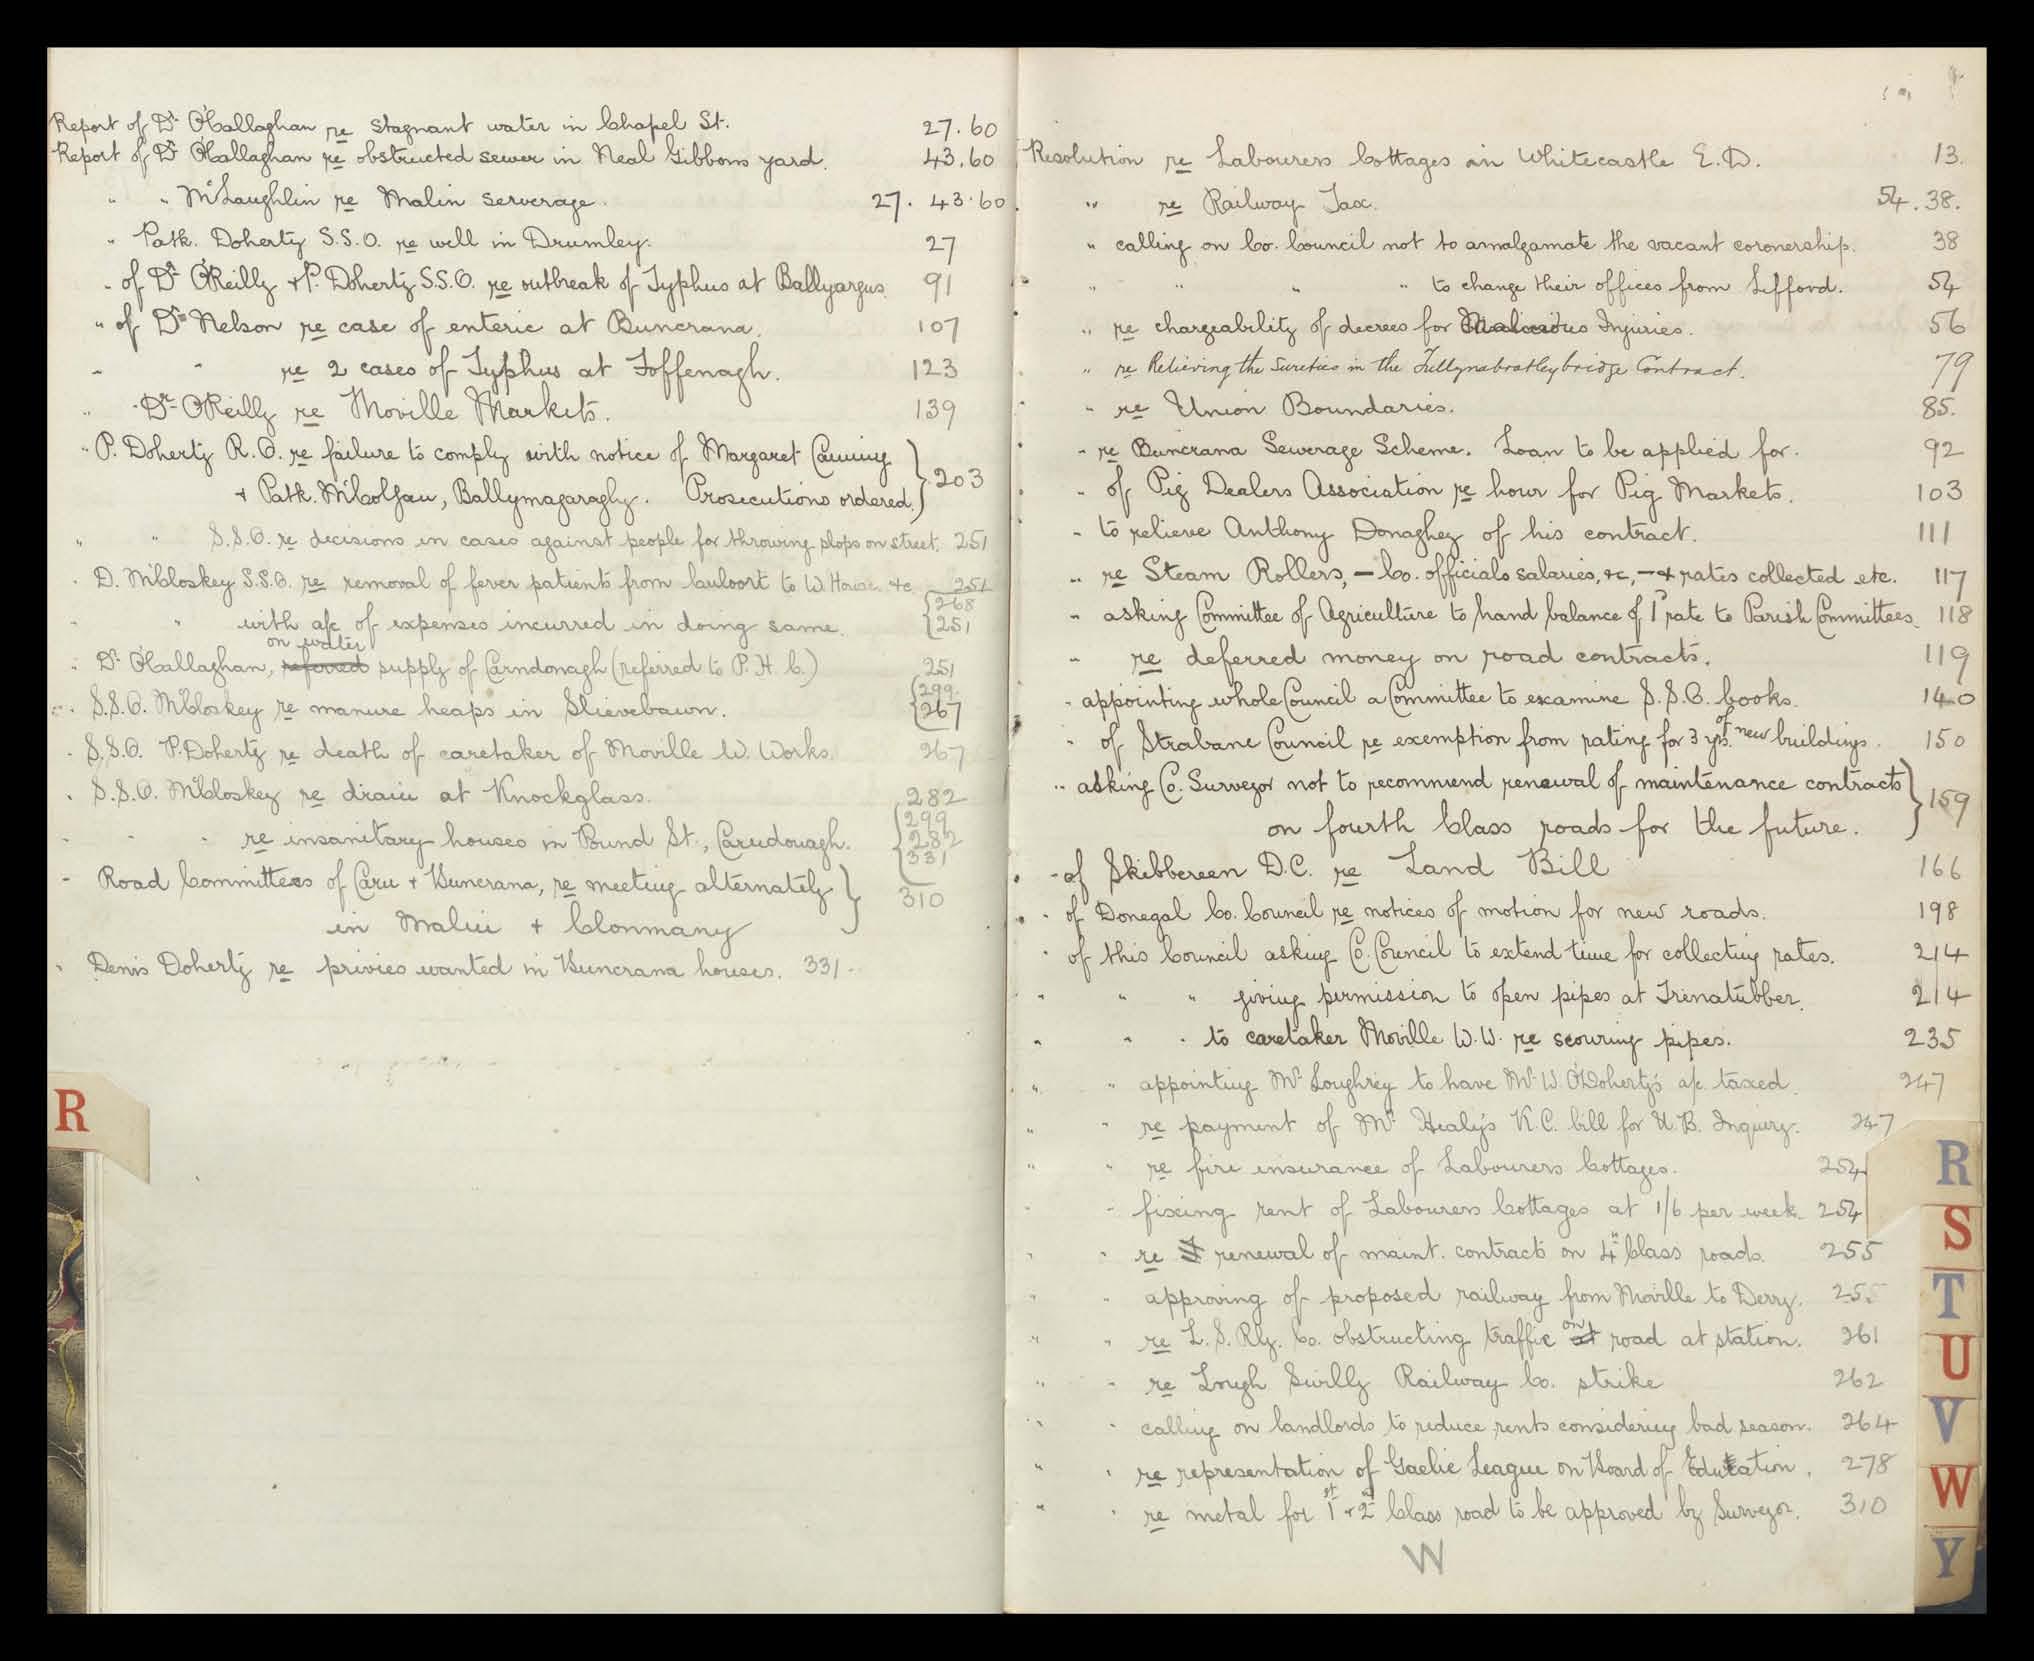 Report of Dr O'Callaghan re stagnant water in Chapel St. 27.60
Report of Dr O'Callaghan re obstructed sewer in Neal Gibbons yard. 43.60
" " McLaughlin re Malin sewerage. 27. 43.60.
" Patk. Doherty S.S.O. re well in Drumley. 27
" of Dr O'Reilly + P. Doherty S.S.O. re outbreak of Typhus at Ballyargus 91
" of Dr Nelson re case of enteric at Buncrana. 107
" " re 2 cases of Typhus at Foffenagh. 123
" Dr O'Reilly re Moville Markets. 139
" P. Doherty R.O. re failure to comply with notice of Margaret Canning
+ Patk. McColgan, Ballymagaraghy. Prosecutions ordered. } 203
" " S.S.O. re decisions in cases against people for throwing slops on street. 251
" D. McCloskey S.S.O. re removal of fever patients from Culoort to W. House &c 251
268
" " with a/c of expenses incurred in doing same. 251
on water
" Dr O'Callaghan, referred supply of Carndonagh (referred to P.H.C.) 251
299
" S.S.O. McCloskey re manure heaps in Slievebawn. 267
" S.S.O. P. Doherty re death of caretaker of Moville W. Works. 267
" S.S.O. McCloskey re drain at Knockglass. 282
299
" " " re insanitary houses in Pound St., Carndonagh. 282
331
" Road Committees of Carn + Buncrana, re meeting alternately
in Malin + Clonmany } 310
" Denis Doherty re privies wanted in Buncrana houses. 331
R
Resolution re Labourers Cottages in Whitecastle E.D. 13.
" re Railway Tax. 54.38.
" calling on Co. Council not to amalgamate the vacant coronership. 38
" " " " to change their offices from Lifford. 54
" re chargeability of decrees for Malicious Injuries. 56
" re Relieving the Sureties in the Tullynabratley bridge Contract. 79
" re Union Boundaries. 85.
" re Buncrana Sewerage Scheme. Loan to be applied for. 92
" of Pig Dealers Association re hour for Pig Markets. 103
" to relieve Anthony Donaghey of his contract. 111
" re Steam Rollers, — Co. officials salaries, &c, — + rates collected etc. 117
" asking Committee of Agriculture to hand balance of 1d rate to Parish Committees. 118
" re deferred money on road contracts. 119
" appointing whole Council a Committee to examine S.S.O. books. 140
" of Strabane Council re exemption from rating for 3 yrs. of new buildings. 150
" asking Co. Surveyor not to recommend renewal of maintenance contracts
on fourth Class roads for the future. } 159
" of Skibbereen D.C. re Land Bill 166
" of Donegal Co. Council re notices of motion for new roads. 198
" of this Council asking Co. Council to extend time for collecting rates. 214
" " " giving permission to open pipes at Trinatubber. 214
" " " to caretaker Moville W.W. re scouring pipes. 235
" " appointing Mr Loughrey to have Mr W. O'Doherty's a/c taxed. 247
" " re payment of Mr Healy's K.C. bill for U.B. Inquiry. 247
" " re fire insurance of Labourers Cottages. 254
" " fixing rent of Labourers Cottages at 1/6 per week. 254
" " re renewal of maint. contracts on 4th Class roads. 255
" " approving of proposed railway from Moville to Derry. 255
" " re L.S. Rly. Co. obstructing traffic on road at station. 261
" " re Lough Swilly Railway Co. strike 262
" " calling on landlords to reduce rents considering bad season. 264
" " re representation of Gaelic League on Board of Education. 278
" " re metal for 1st + 2nd Class road to be approved by Surveyor. 310
W
R
S
T
U
V
W
Y